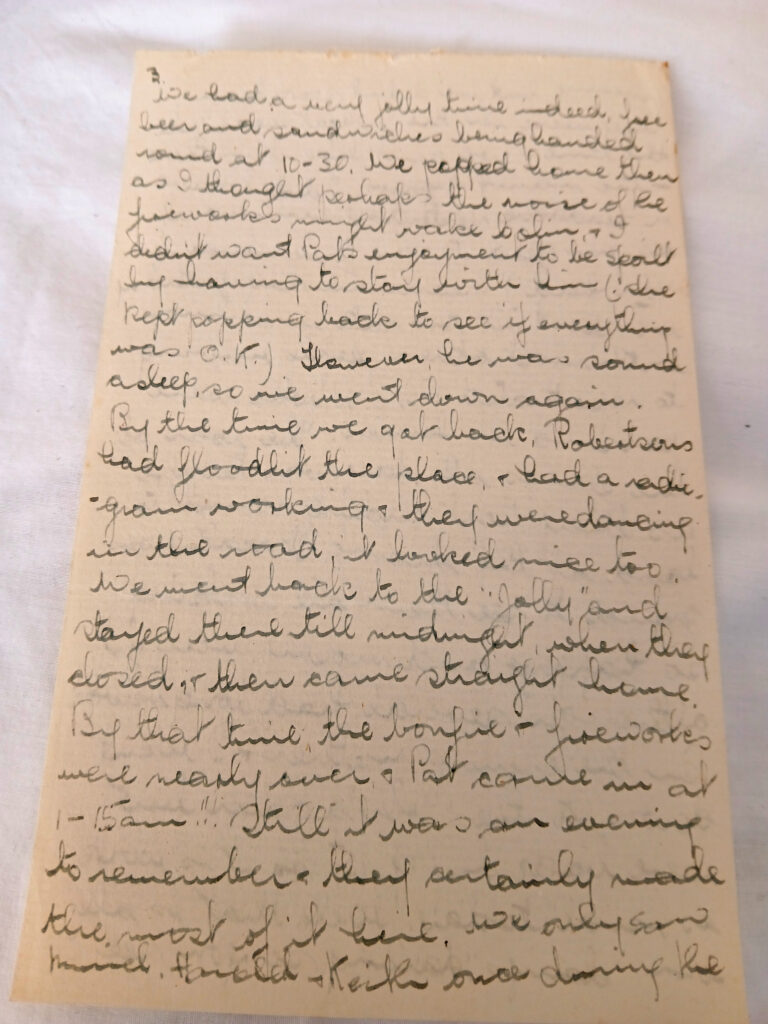 3.
We had a very jolly time indeed, free
beer and sandwiches being handed
round at 10-30. We popped home then
as I thought perhaps the noise of the
fireworks might wake Colin, & I
didn't want Pat's enjoyment to be spoilt
by having to stay with him (she
kept popping back to see if everything
was O.K.) However, he was sound
asleep, so we went down again.
By the time we got back, Robertsons
had floodlit the place, & had a radio-
-gram working & they were dancing
in the road, it looked nice too.
We went back to the "Jolly" and
stayed there till midnight, when they
closed, & then came straight home.
By that time the bonfire & fireworks
were nearly over, & Pat came in at
1-15am!!! Still it was an evening
to remember & they certainly made
the most of it here. We only saw
Harold & Keith once during the